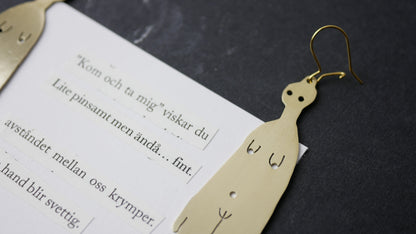 "Kom och ta mig" viskar du
Lite pinsamt men ändå... fint.
avståndet mellan oss krymper.
hand blir svettig.